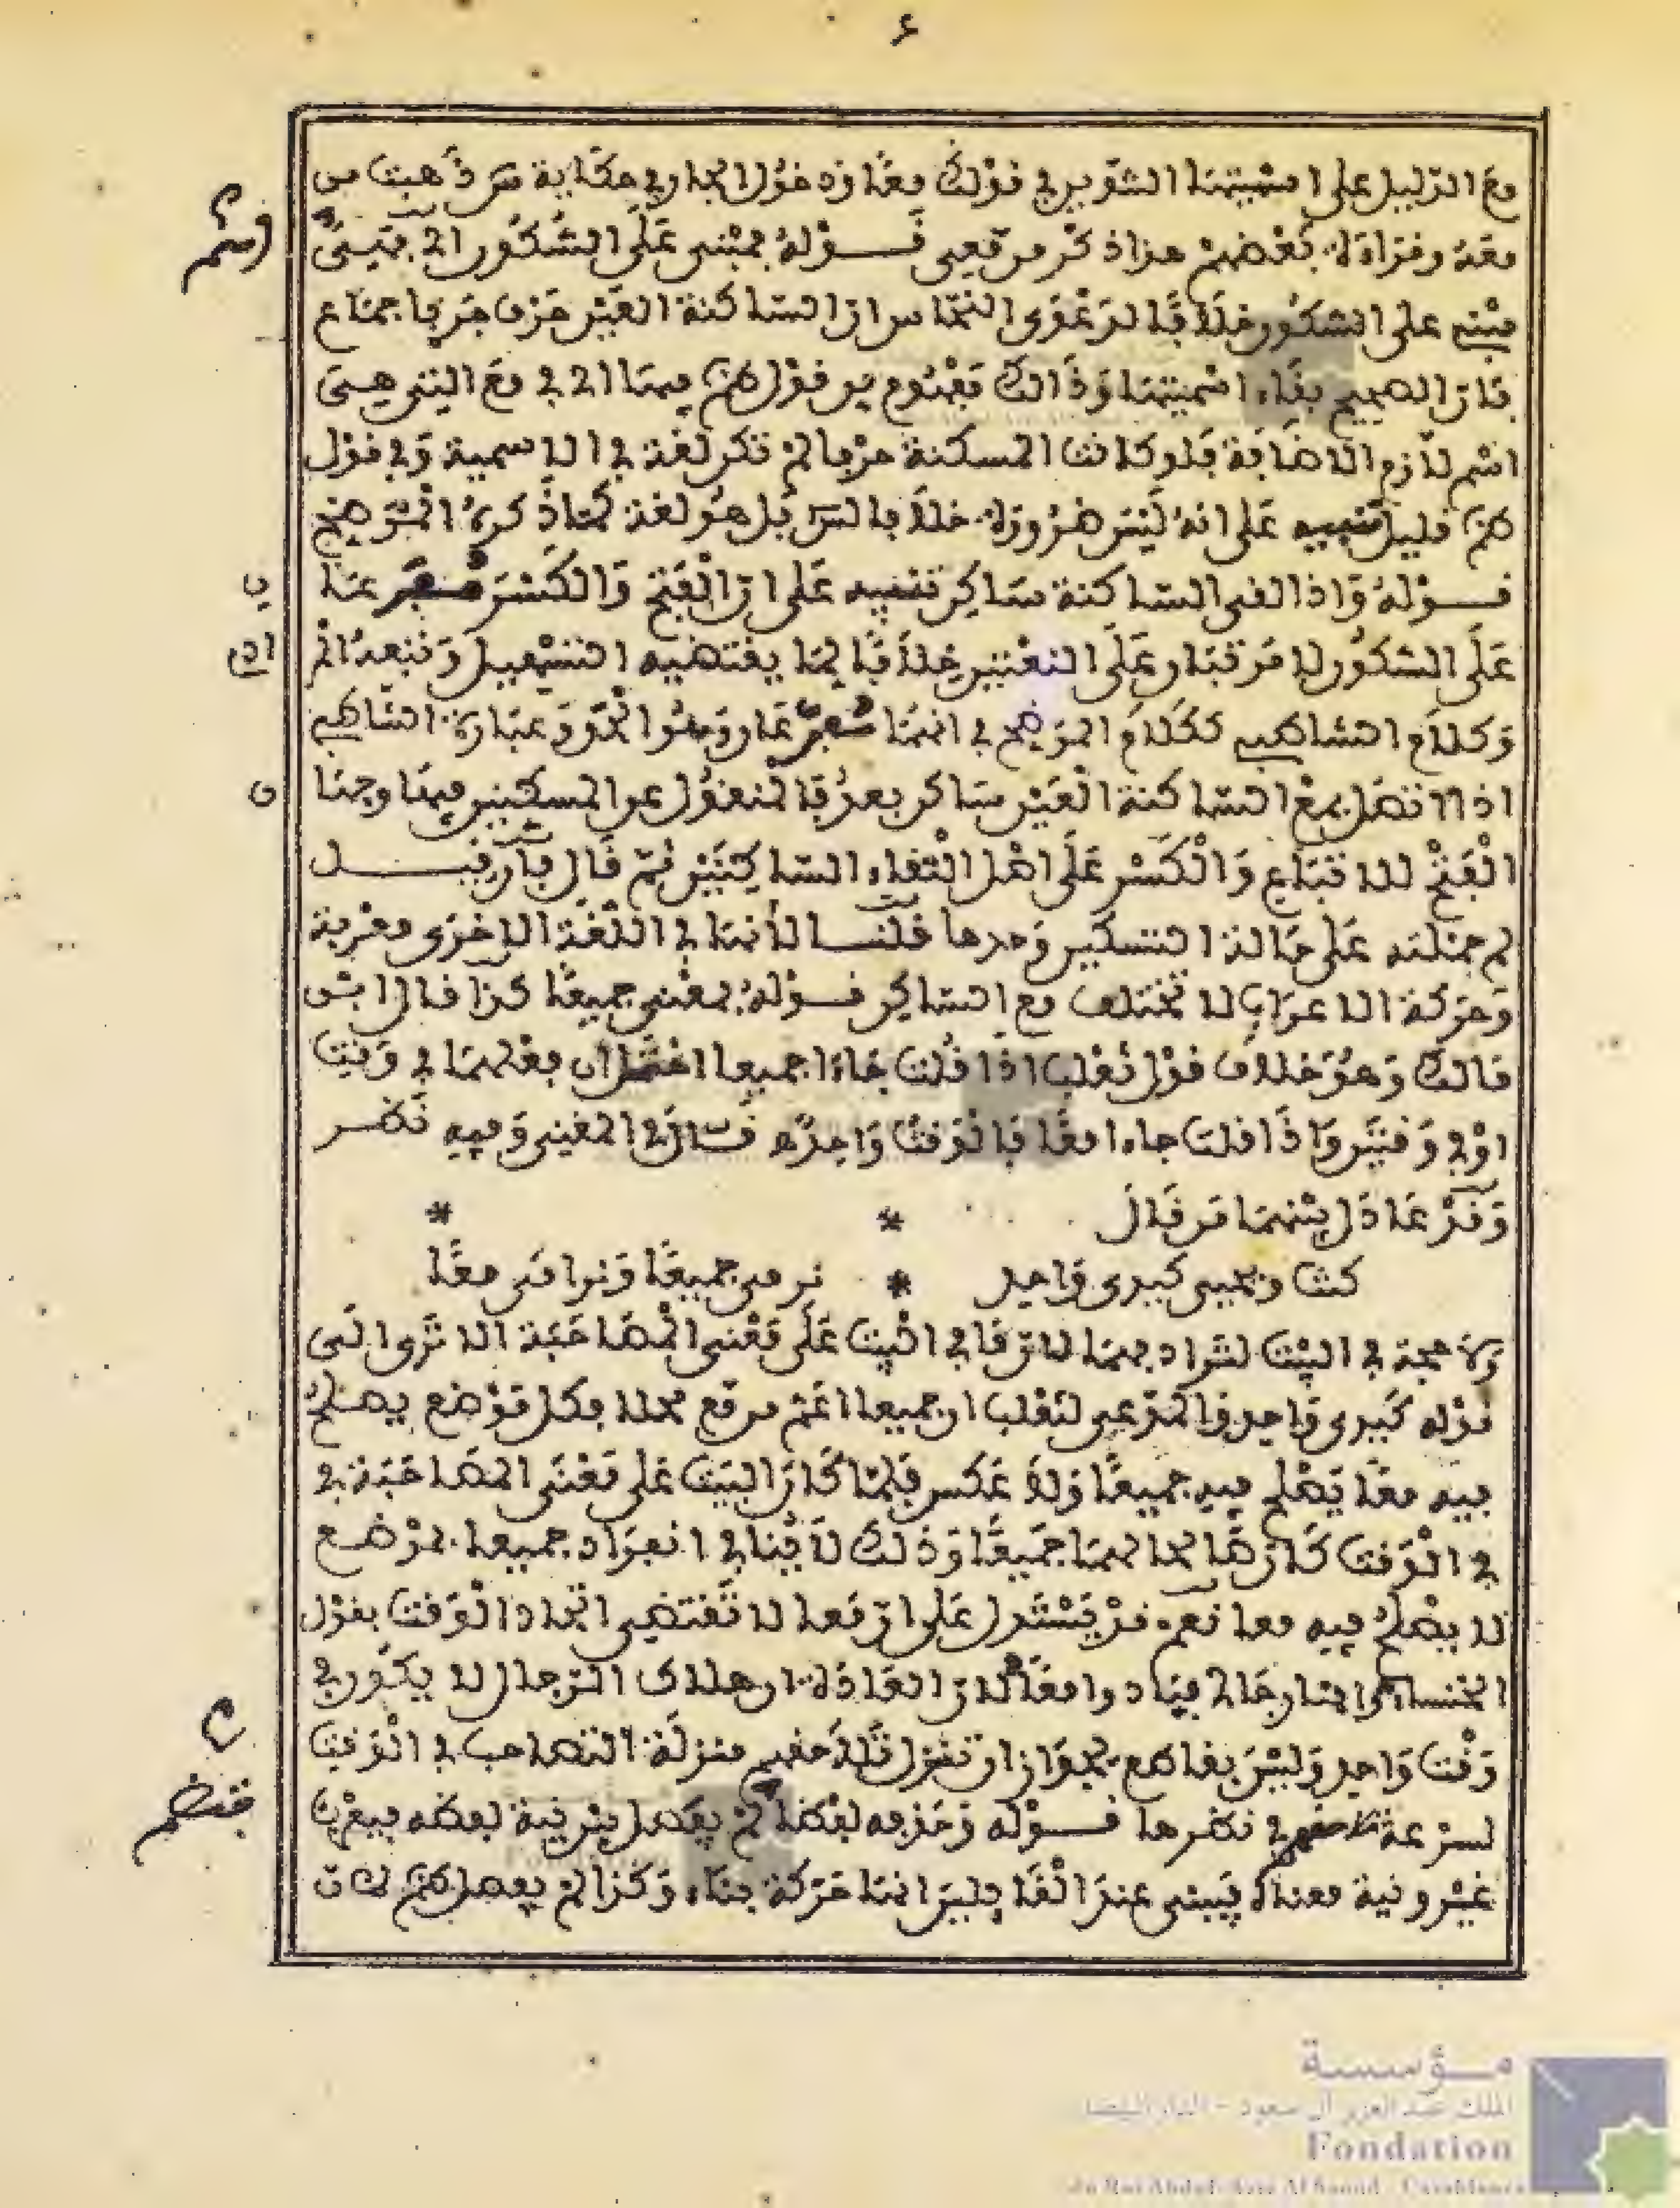 ع
مع الدليل على اسميتها التنوين في قولك معا ودخول الجار في حكاية س ذهبت من
معه وقراءة بعضهم هذا ذكر من معي قوله مبني على السكون اي فبني
مبني على السكون خلافا لدعوى النحاس ان الساكنة العين حرف جر باجماع
فان الصحيح بقاء اسميتها وذالك مفهوم من قول الناظم فيها اي في مع التي هي
اسم لازم الاضافة فلو كانت المسكنة حرفا لم تكن لغة في الاسمية وفي قول
الناظم قليل تنبيه على انه ليس ضرورة خلافا لس بل هو لغة كما ذكره الموضح
قوله واذا لقي الساكنة ساكن تنبيه على ان الفتح والكسر مفرعان
على السكون لا مرتبان على اللغتين خلافا لما يقتضيه التسهيل وتبعه الم
وكلام الشاطبي ككلام الموضح في انهما مفرعان وهو الحق وعبارة الشاطبي
اذا اتصل بمع الساكنة العين ساكن بعدها المنقول عن المسكنين فيها وجهان
الفتح للاتباع والكسر على اصل التقاء الساكنين ثم قال فان قيل
لم حملته على حالة التسكين وحدها قلنا لأنها في اللغة الاخرى معربة
وحركة الاعراب لا تختلف مع الساكن قوله بمعنى جميعا كذا قال ابن
مالك وهو خلاف قول ثعلب اذا قلت جاءا جميعا احتمل ان فعلهما في وقت
او في وقتين واذا قلت جاءا معا فالوقت واحد قال في المغني وفيه نظر
وقد عادل بينهما من قال * *
كنت ويحيى كيدي واحد * نرمي جميعا ونرامى معا
ولا حجة في البيت لترادفهما لان ما في البيت على معنى المصاحبة الا ترى الى
قوله كيدي واحد والمدعي لثعلب ان جميعا اعم من مع محلا فكل موضع يصلح
فيه معا يصلح فيه جميعا ولا عكس فلما كان البيت على معنى المصاحبة في
في الوقت كان صالحا لهما جميعا وذلك لا ينافي انفراد جميعا بموضع
لا يصلح فيه معا نعم قد يستدل على ان معا لا تقتضي اتحاد الوقت بقول
الخنساء وافنى رجالي فبادوا معا لان العادة ان هلاك الرجال لا يكون في
وقت واحد وليس بقاطع لجواز ان تنزل تلاحقهم منزلة التصاحب في الوقت
لسرعة تلاحقهم في نظرها قوله وحذفه لفظا لم يفصل بين نية لفظه فيعرب
غير ونية معناه فيبنى عند الفا فليس انها حركة بناء وكذا لم يفصل الناظم لان
اسم
ن
ان
ن
فتضم
مؤسسة
الملك عبد العزيز آل سعود - الدار البيضاء
Fondation
du Roi Abdul-Aziz Al Saoud - Casablanca